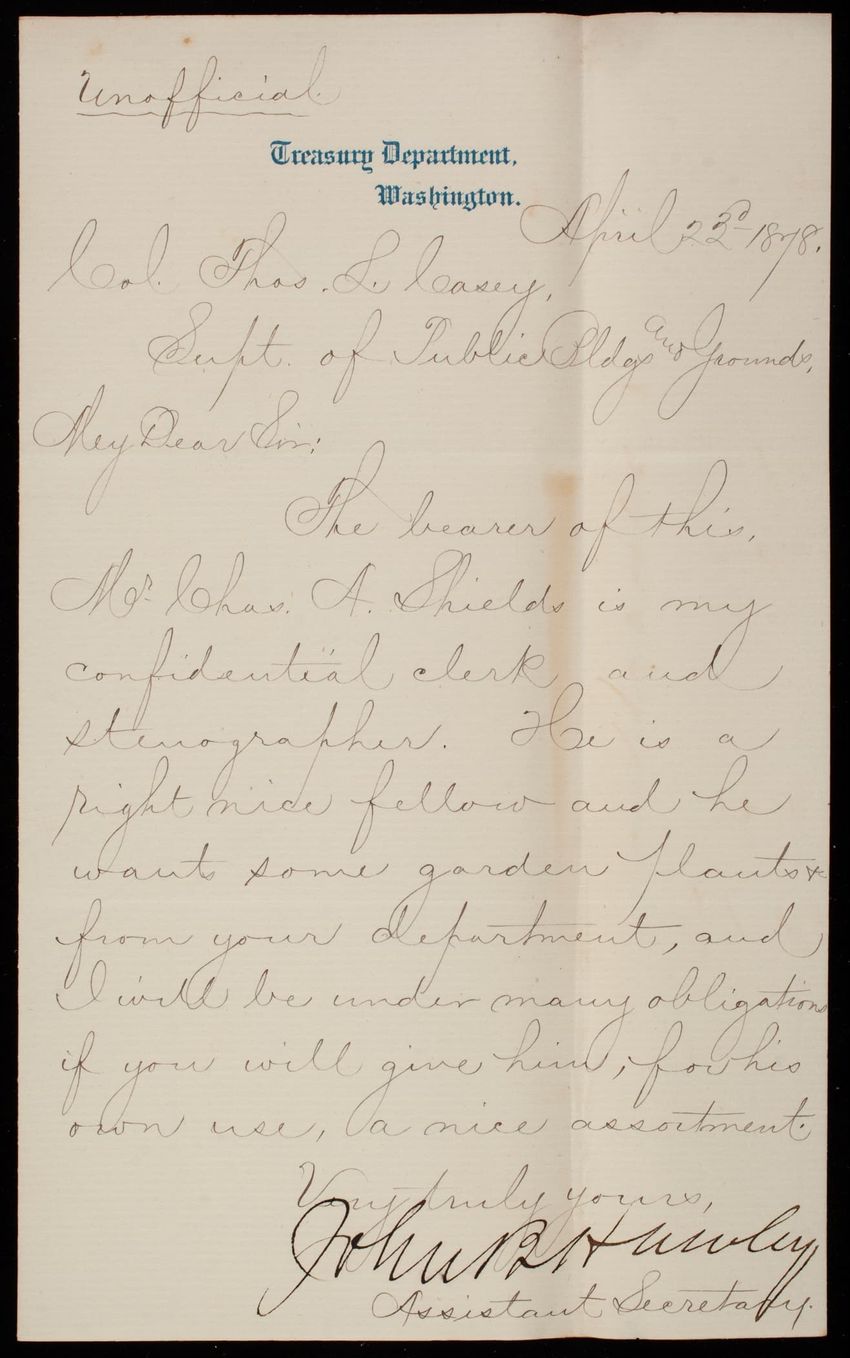 Unofficial.
Treasury Department,
Washington.
April 22d 1878.
Col. Thos. L. Casey,
Supt. of Public Bldgs and Grounds,
My Dear Sir:
The bearer of this,
Mr. Chas. A. Shields is my
confidential clerk and
stenographer. He is a
right nice fellow and he
wants some garden plants &c
from your department, and
I will be under many obligations
if you will give him, for his
own use, a nice assortment.
Very truly yours,
John B Hawley
Assistant Secretary.